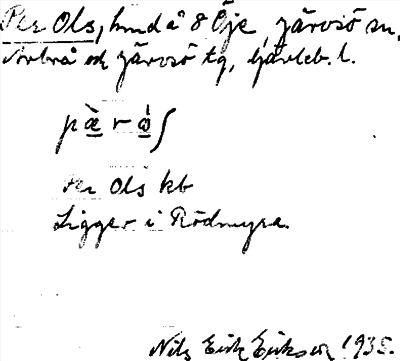 Per Ols, hmd å 8 Öje, Järvsö sn,
Arbrå och Järvsö tg, Gävleb. l.
pæ̀r ὼʃ
Per Ols kb
Ligger i Rödmyra.
Nils Erik Eriksson 1935.